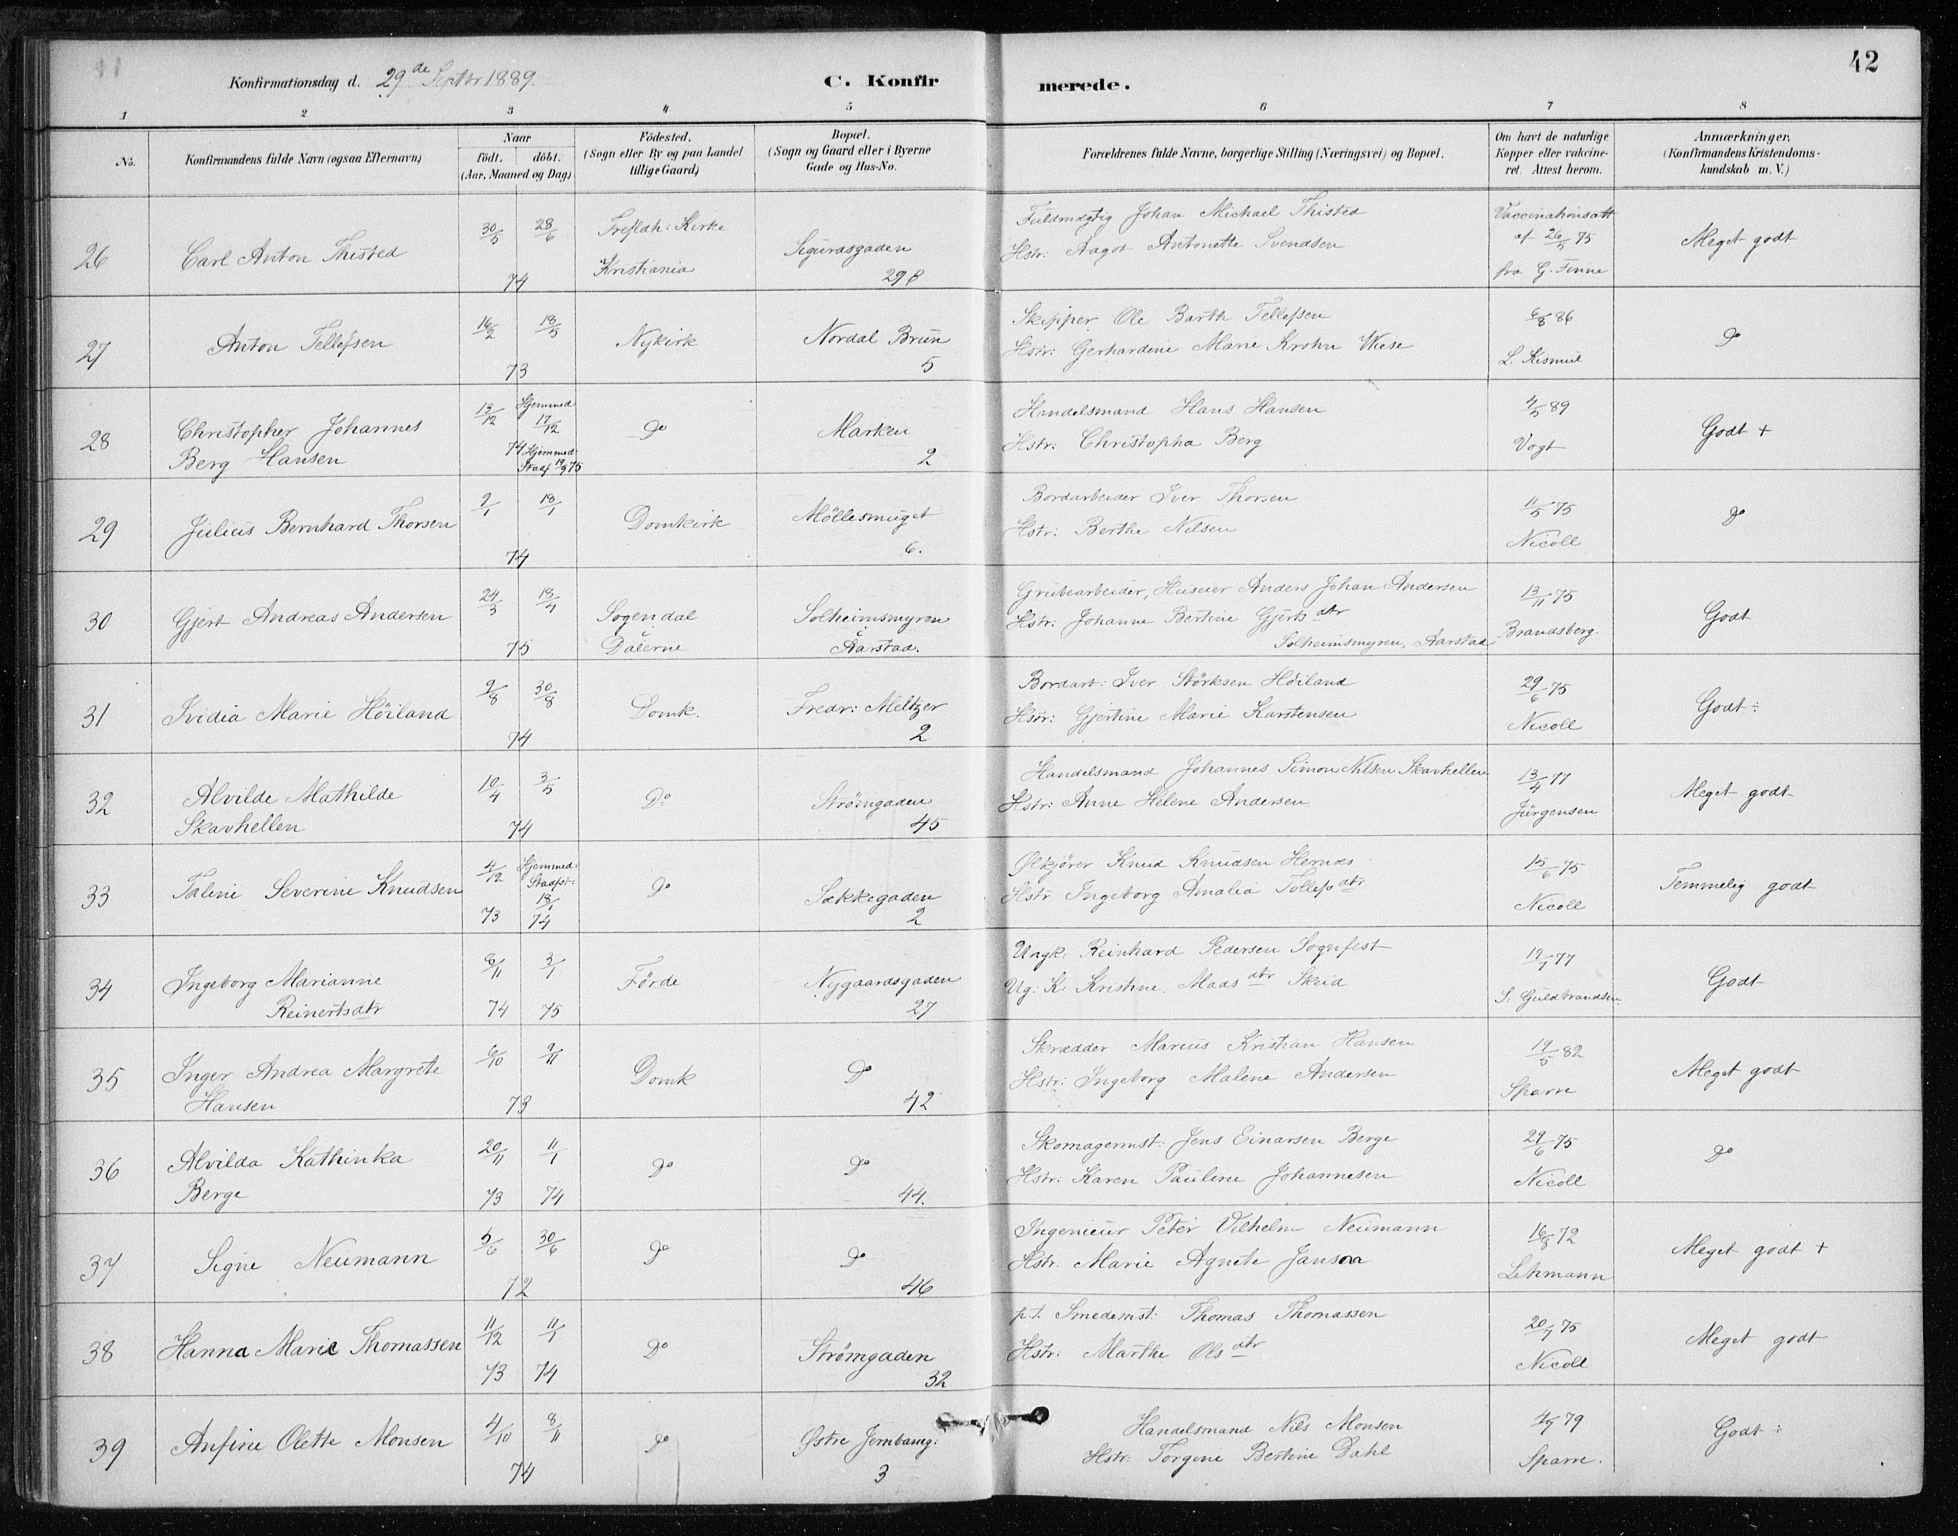 42
Konfirmationsdag d. 29de Septbr 1889.
C. Konfirmerede.
1 2 3 4 5 6 7 8
No.
Konfirmandens fulde Navn (ogsaa Efternavn)
Naar
födt. döbt.
(Aar, Maaned og Dag)
Födested.
(Sogn eller By og paa Landet
tillige Gaard)
Bopæl.
(Sogn og Gaard eller i Byerne
Gade og Hus-No.
Forældrenes fulde Navne, borgerlige Stilling (Næringsvei) og Bopæl.
Om havt de naturlige
Kopper eller vakcine-
ret. Attest herom.
Anmærkninger,
(Konfirmandens Kristendoms-
kundskab m. V.)
26 Carl Anton Thisted 30/5 28/6 74 Trefldh: Kirke
Kristiania
Sigurdsgaden
29
Fuldmægtig Johan Michael Thisted
Hstr: Aagot Antonette Svendsen
Vaccinationsatt
af 26/5 75
fra G. Finne
Meget godt
27 Anton Tellefsen 16/2 18/5 73 Nykirk
Nordal Brun
5
Skipper Ole Barth Tellefsen
Hstr: Gerhardine Marie Krohn Wiese
6/8 86
L. Kismul
Do
28 Christopher Johannes
Berg Hansen
13/12 Hjemmed
17/12
74 Hjemmed:
Stadf 19/9 75
Do
Marken
2
Handelsmand Hans Hansen
Hstr: Christopha Berg
4/5 89
Vogt
Godt +
29 Julius Bernhard Thorsen 9/1 18/1 74 Domkirk
Möllesmuget
6.
Bordarbeider Iver Thorsen
Hstr: Berthe Nilsen
11/5 75
Nicoll
Do
30 Gjert Andreas Andersen 24/3 18/4 75
Sogendal
i
Dalerne
Solheimsmyren
i
Aarstad.
Grubearbeider, Huseier Anders Johan Andersen
Hstr: Johanne Bertine Gjertsdtr
Solheimsmyren, Aarstad
13/11 75
Brandsberg.
Godt
31 Ividia Marie Höiland 9/8 30/8 74 Domk.
Fredr: Meltzer
2
Bordarb: Iver Störksen Höiland
Hstr: Gjertine Marie Karstensen
29/6 75
Nicoll
Godt ÷
32 Alvilde Mathilde
Skavhellen
10/4 3/5 74 Do
Strömgaden
45
Handelsmand Johannes Simon Nilsen Skavhellen
Hstr: Anne Helene Andersen
13/4 77
Jürgensen
Meget godt
33 Taleni Severine Knudsen
4/12 73 Hjemmed:
Stadfst:
18/1
74
Do
Sækkegaden
2
Ølkjører Knud Knudsen Hernds
Hstr Ingeborg Amalia Tollefsdtr
15/6 75
Nicoll
Temmelig godt
34 Ingeborg Marianne
Reinertsdtr
8/11 3/1
74 75
Förde
Nygaardsgaden
27
Ungk: Reinhard Pedersen Sognfest
Ug: K: Kristine. Madsdtr Skeid
19/7 77
S. Guldbrandsen
Godt
35 Inger Andrea Margrete
Hansen
6/10 9/11 73 Domk
Do
42
Skrædder Marius Kristian Hansen
Hstr: Ingeborg Malene Andersen
19/5 82
Sparre
Meget godt
36 Alvilda Kathinka
Berge
20/11 11/1
73 74
Do
Do
44.
Skomagermst: Jens Einarsen Berge
Hstr: Karen Pauline Johannesen
29/6 75
Nicoll
Do
37 Signe Neumann 5/6 30/6 72 Do
Do
46
Ingenieur Peter Vilhelm Neumann
Hstr: Marie Agnete Janson
16/8 72
Lehmann
Meget godt +
38 Hanna Marie Thomassen 11/12 11/1
73 74
Do
Strömgaden
32
p.t. Smedemst: Thomas Thomassen
Hstr: Marthe Olsdtr
20/7 75
Nicoll
Meget godt
39 Anfine Olette Monsen 4/10 8/11 74 Do
Østre Jernbaneg:
3
Handelsmand Nils Monsen
Hstr: Torgine Bertine Dahl
4/7 79
Sparre.
Godt ÷